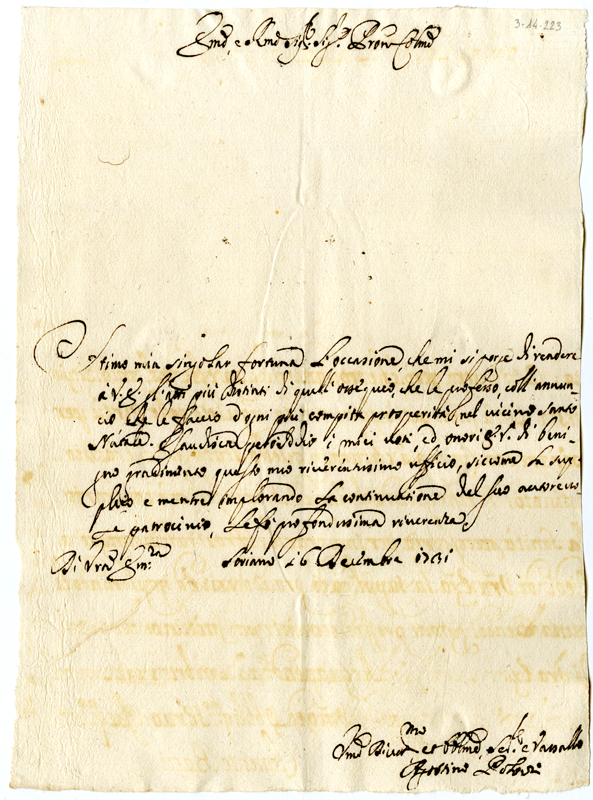 3-14-223
Em͞o, e Rm͞o Sig.re Sig.r Pron͞e Col͞mo
Stimo mia singolar fortuna l'occasione, che mi si porge di rendere
à V. E. gl'atti più distinti di quell'ossequio, che le professo, coll'annun-
cio che le faccio d'ogni più compita prosperità nel vicino Santo
Natale. Esaudisca Iddio i miei voti, ed onori V. E. di beni-
gno gradimento questo mio riverentissimo ufficio, siccome la sup-
plico e mentre implorando la continuatione del suo autorevo-
le patrocinio, le fò profondissima riverenza.
Di Vra͞ Em.za
Soriano 16 Decembre 1731
Um͞o Divot.mo et Obblm͞o Se.re e Vassallo
Agostino